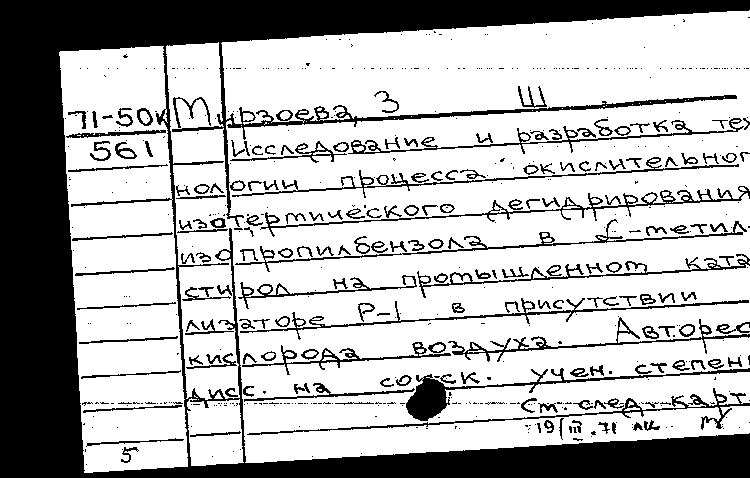 71-50к Мирзоева, З Ш
561 Исследование и разработка тех
нологии процесса окислительног
изотермического дегидрирования
изопропилбензола в α-метил-
стирол на промышленном ката
лизаторе Р-1 в присутствии
кислорода воздуха. Авторе
дисс. на соиск. учен. степен
См. след. карт
19/III.71
5